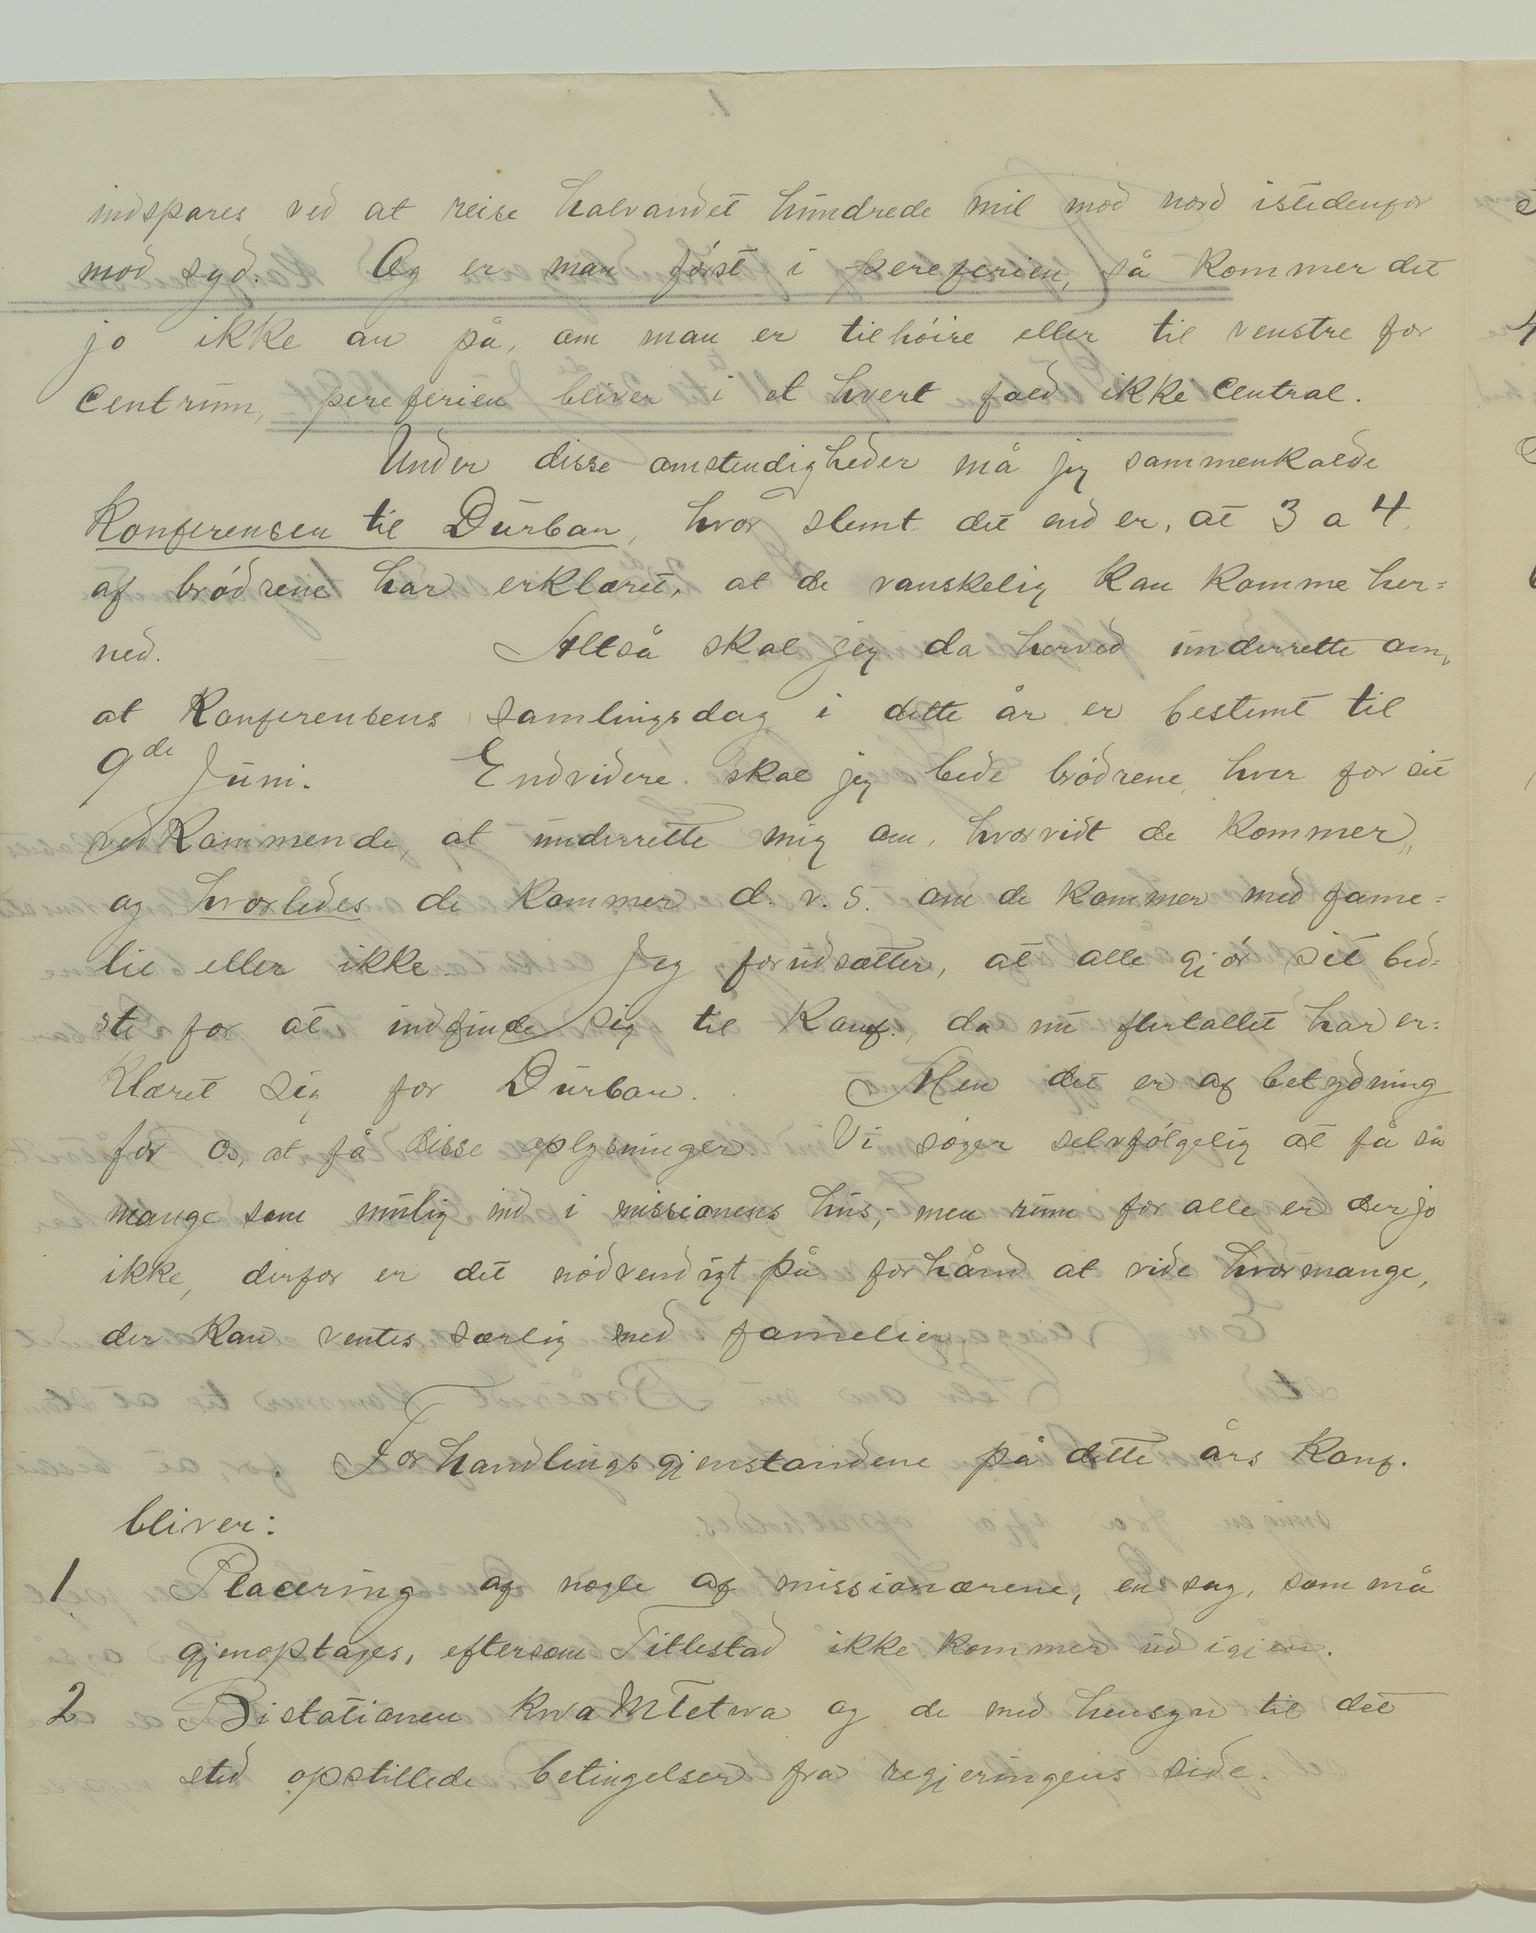 indspares ved at reise halvandet hundrede mil mod nord istedenfor
mod syd. Og er man først i pereferien, så kommer det
jo ikke an på, om man er tilhöire eller til venstre for
Centrum, pereferien bliver i et hvert fald ikke central.
Under disse omstendigheder må jeg sammenkalde
Konferensen til Durban, hvor slemt det end er, at 3 a 4
af brödrene har erklæret, at de vanskelig kan komme her=
ned. Altså skal jeg da herved underrette om,
at Konferensens samlingsdag i dette år er bestemt til
9de Juni. Endvidere skal jeg bede brödrene, hver for sit
vedkommende, at underrette mig om, hvorvidt de kommer,
og hvorledes de kommer d. v. s. om de kommer med fame=
lie eller ikke. Jeg forudsætter, at alle gjör sit bed=
ste for at indfinde sig til Konf., da nu flertallet har er=
klæret sig for Durban. Men det er af betydning
for os, at få disse oplysninger. Vi söger selvfölgelig at få så
mange som mulig ind i missionens hus, men rum for alle er der jo
ikke, derfor er det nödvendigt på forhånd at vide hvormange,
der kan ventes særlig med famelier.
Forhandlingsgjenstandene på dette års Konf.
bliver:
1. Placering af nogle af missionærene, en sag, som må
gjenoptages, eftersom Tillestad ikke kommer ud igjen.
2. Bistationen Kwa Mtetwa og de med hensyn til det
sted opstillede betingelser fra regjeringens side.